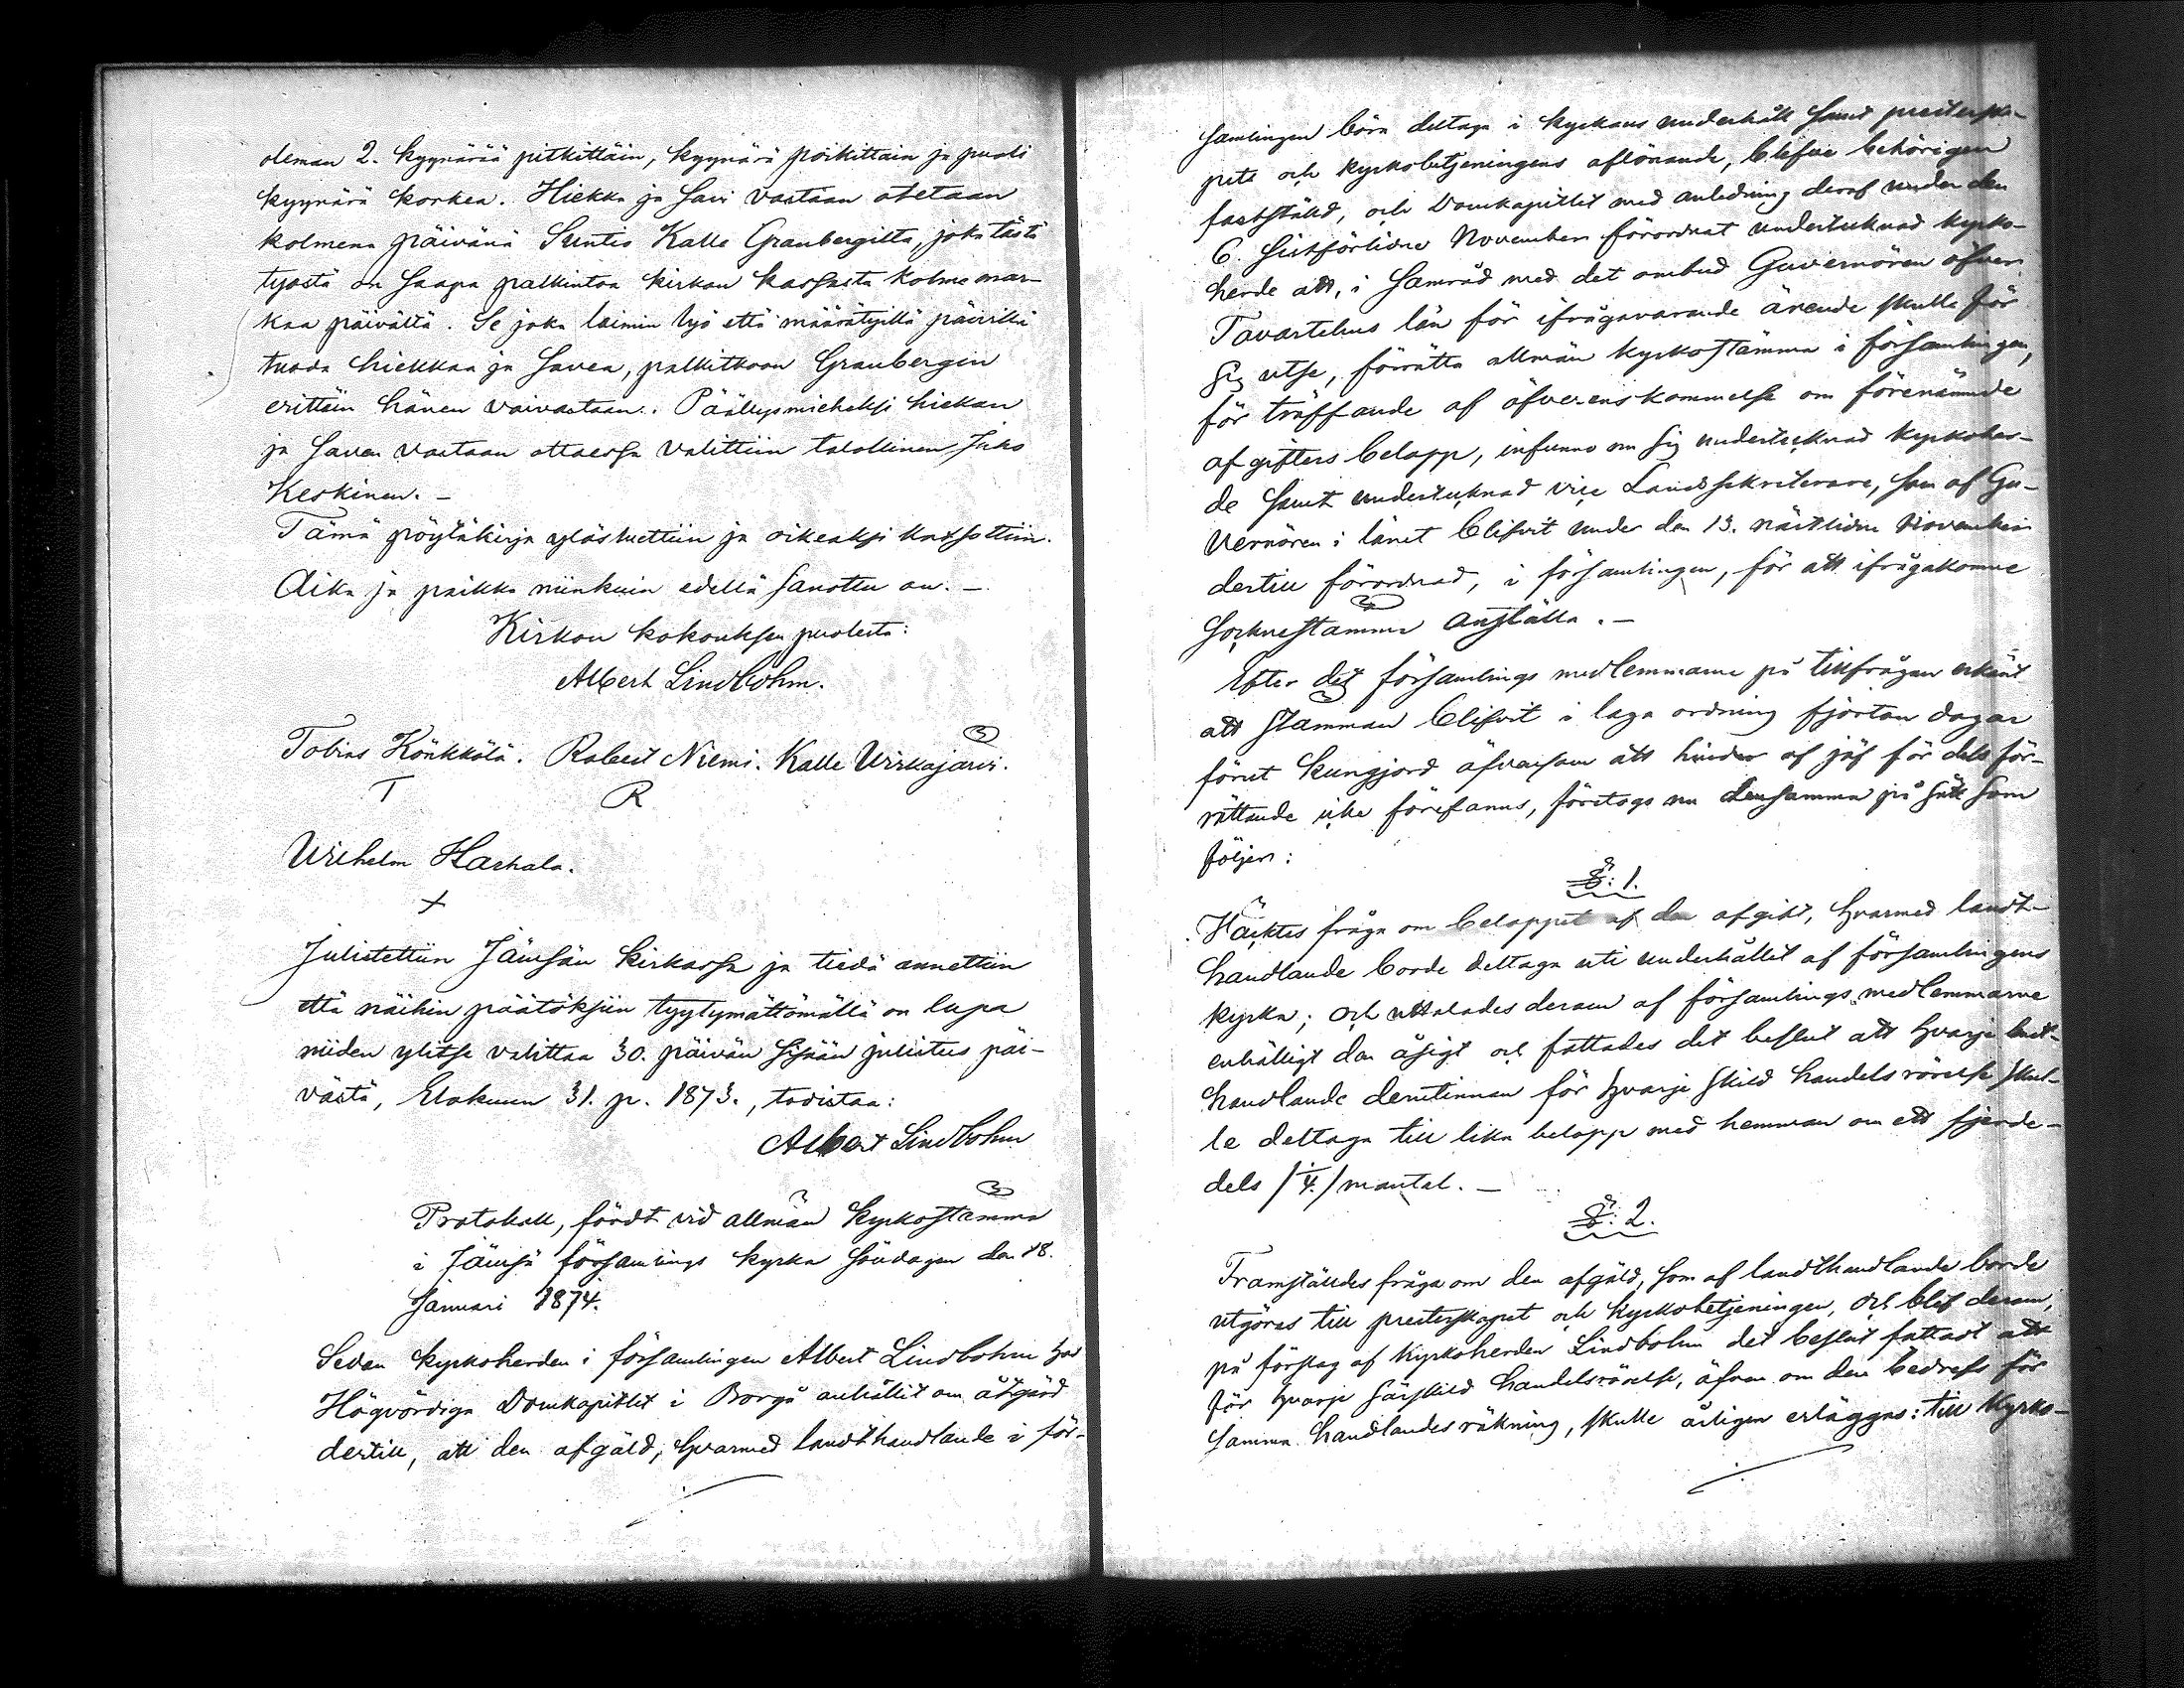 oleman 2. kyynärää pitkittäin, kyynärä poikittain ja puoli
kyynärä korkea. Hiekka ja Savi vastaan otetaan
kolmena päivänä Suntio Kalle Granbergilta, joka tästä
työstä on saapa palkintoa kirkon kassasta kolme mar-
kaa päivältä. Se joka laimin lyö että määrätyillä päivillä
tuoda hiekkaa ja savea, palkitkoon Granbergin
erittäin hänen vaivastaan. Päällysmieheksi hiekan
ja saven vastaan ottaessa valittiin talollinen Juho
Keskinen. –
Tämä pöytäkirja ylösluettiin ja oikeaksi katsottiin.
Aika ja paikka niinkuin edellä sanottu on. –
Kirkon kokouksen puolesta:
Albert Lindbohm.
Tobias Könkkölä. Robert Niemi. Kalle Wirkajärvi.
T R
Wilhelm Harhala.
+
Julistettiin Jämsän kirkossa ja tiedä annettiin
että näihin päätöksiin tyytymättömällä on lupa
niiden ylitse valittaa 30. päivän sisään julistus päi-
västä, Elokuun 31. p. 1873., todistaa:
Albert Lindbohm
Protokoll, fördt vid allmän kyrkostämma
i Jämsä församlings kyrka söndagen den 18.
Januari 1874.
Sedan kyrkoherden i församlingen Albert Lindbohm hos
Högvördiga Domkapitlet i Borgå anhållit om åtgärd
dertill, att den afgäld, hvarmed landthandlande i för-
samlingen böra deltaga i kyrkans underhåll samt presterska-
pets och kyrkobetjeningens aflönande, blefve behörigen
fastställd, och Domkapitlet med anledning deraf under den
6. sistförlidne November förordnat undertecknad kyrko-
herde att, i samråd med det ombud Guvernören öfver
Tavastehus län för ifrågavarande ärende skulle för
sig utse, förrätta allmän kyrkostämma i församlingen,
för träffande af öfverenskommelse om förenämnde
afgifters belopp, infunno nu sig undertecknad kyrkoher-
de samt undertecknad vice Landssekreterare, som af Gu-
vernören i länet blifvit under den 13. nästlidne November
dertill förordnad, i församlingen, för att ifrågakomne
socknestämma anställa. –
Efter det församlings medlemmarne på tillfrågan erkänt
att stämman blifvit i laga ordning fjorton dagar
förut kungjord äfvensom att hinder af jäf för dess för-
rättande icke förefanns, företogs nu densamma på sätt som
följer:
§: 1.
Väcktes fråga om beloppet af den afgift, hvarmed landt-
handlande borde deltaga uti underhållet af församlingens
kyrka; och uttalades derom af församlings medlemmarne
enhälligt den åsigt och fattades det beslut att hvarje landt-
handlande derstinnan för hvarje skild handelsrörelse skul-
le deltaga till lika belopp med hemman om ett fjerde-
dels /¼/ mantal. –
§: 2.
Framställdes fråga om den afgäld, som af landthandlande borde
utgöras till presterskapet och kyrkobetjeningen, och blef derom,
på förslag af Kyrkoherden Lindbohm det beslut fattadt att
för hvarje särskild handelsrörelse, äfven om den bedrefs för
samma handlandes räkning, skulle årligen erläggas: till Kyrko-